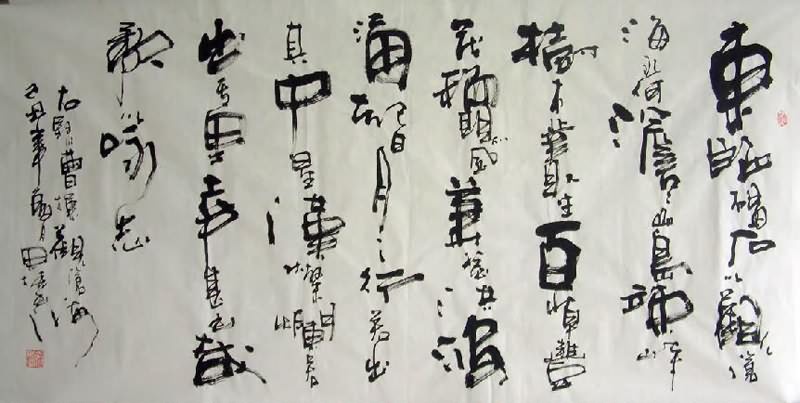 東臨碣石以觀滄
海水何澹澹山島竦峙
樹木叢生百草豐
茂秋風蕭瑟洪波
涌起日月之行若出
其中星漢燦爛若
出其里幸甚至哉
歌以詠志
右録曹操觀滄海
己丑年月